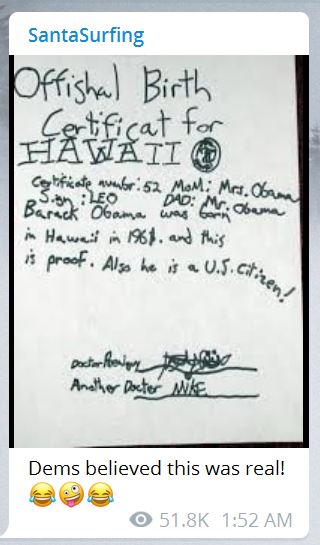 SantaSurfing
Offishal Birth
Certificat for
HAWAII
Certificate number: 52 MoM: Mrs. Obama
Sign: LEO DAD: Mr. Obama
Barack Obama was born
in Hawaii in 1961. and this
is proof. Also he is a U.S. citizen!
Another Docter MIKE
Dems believed this was real!
😂🤪😂
51.8K 1:52 AM